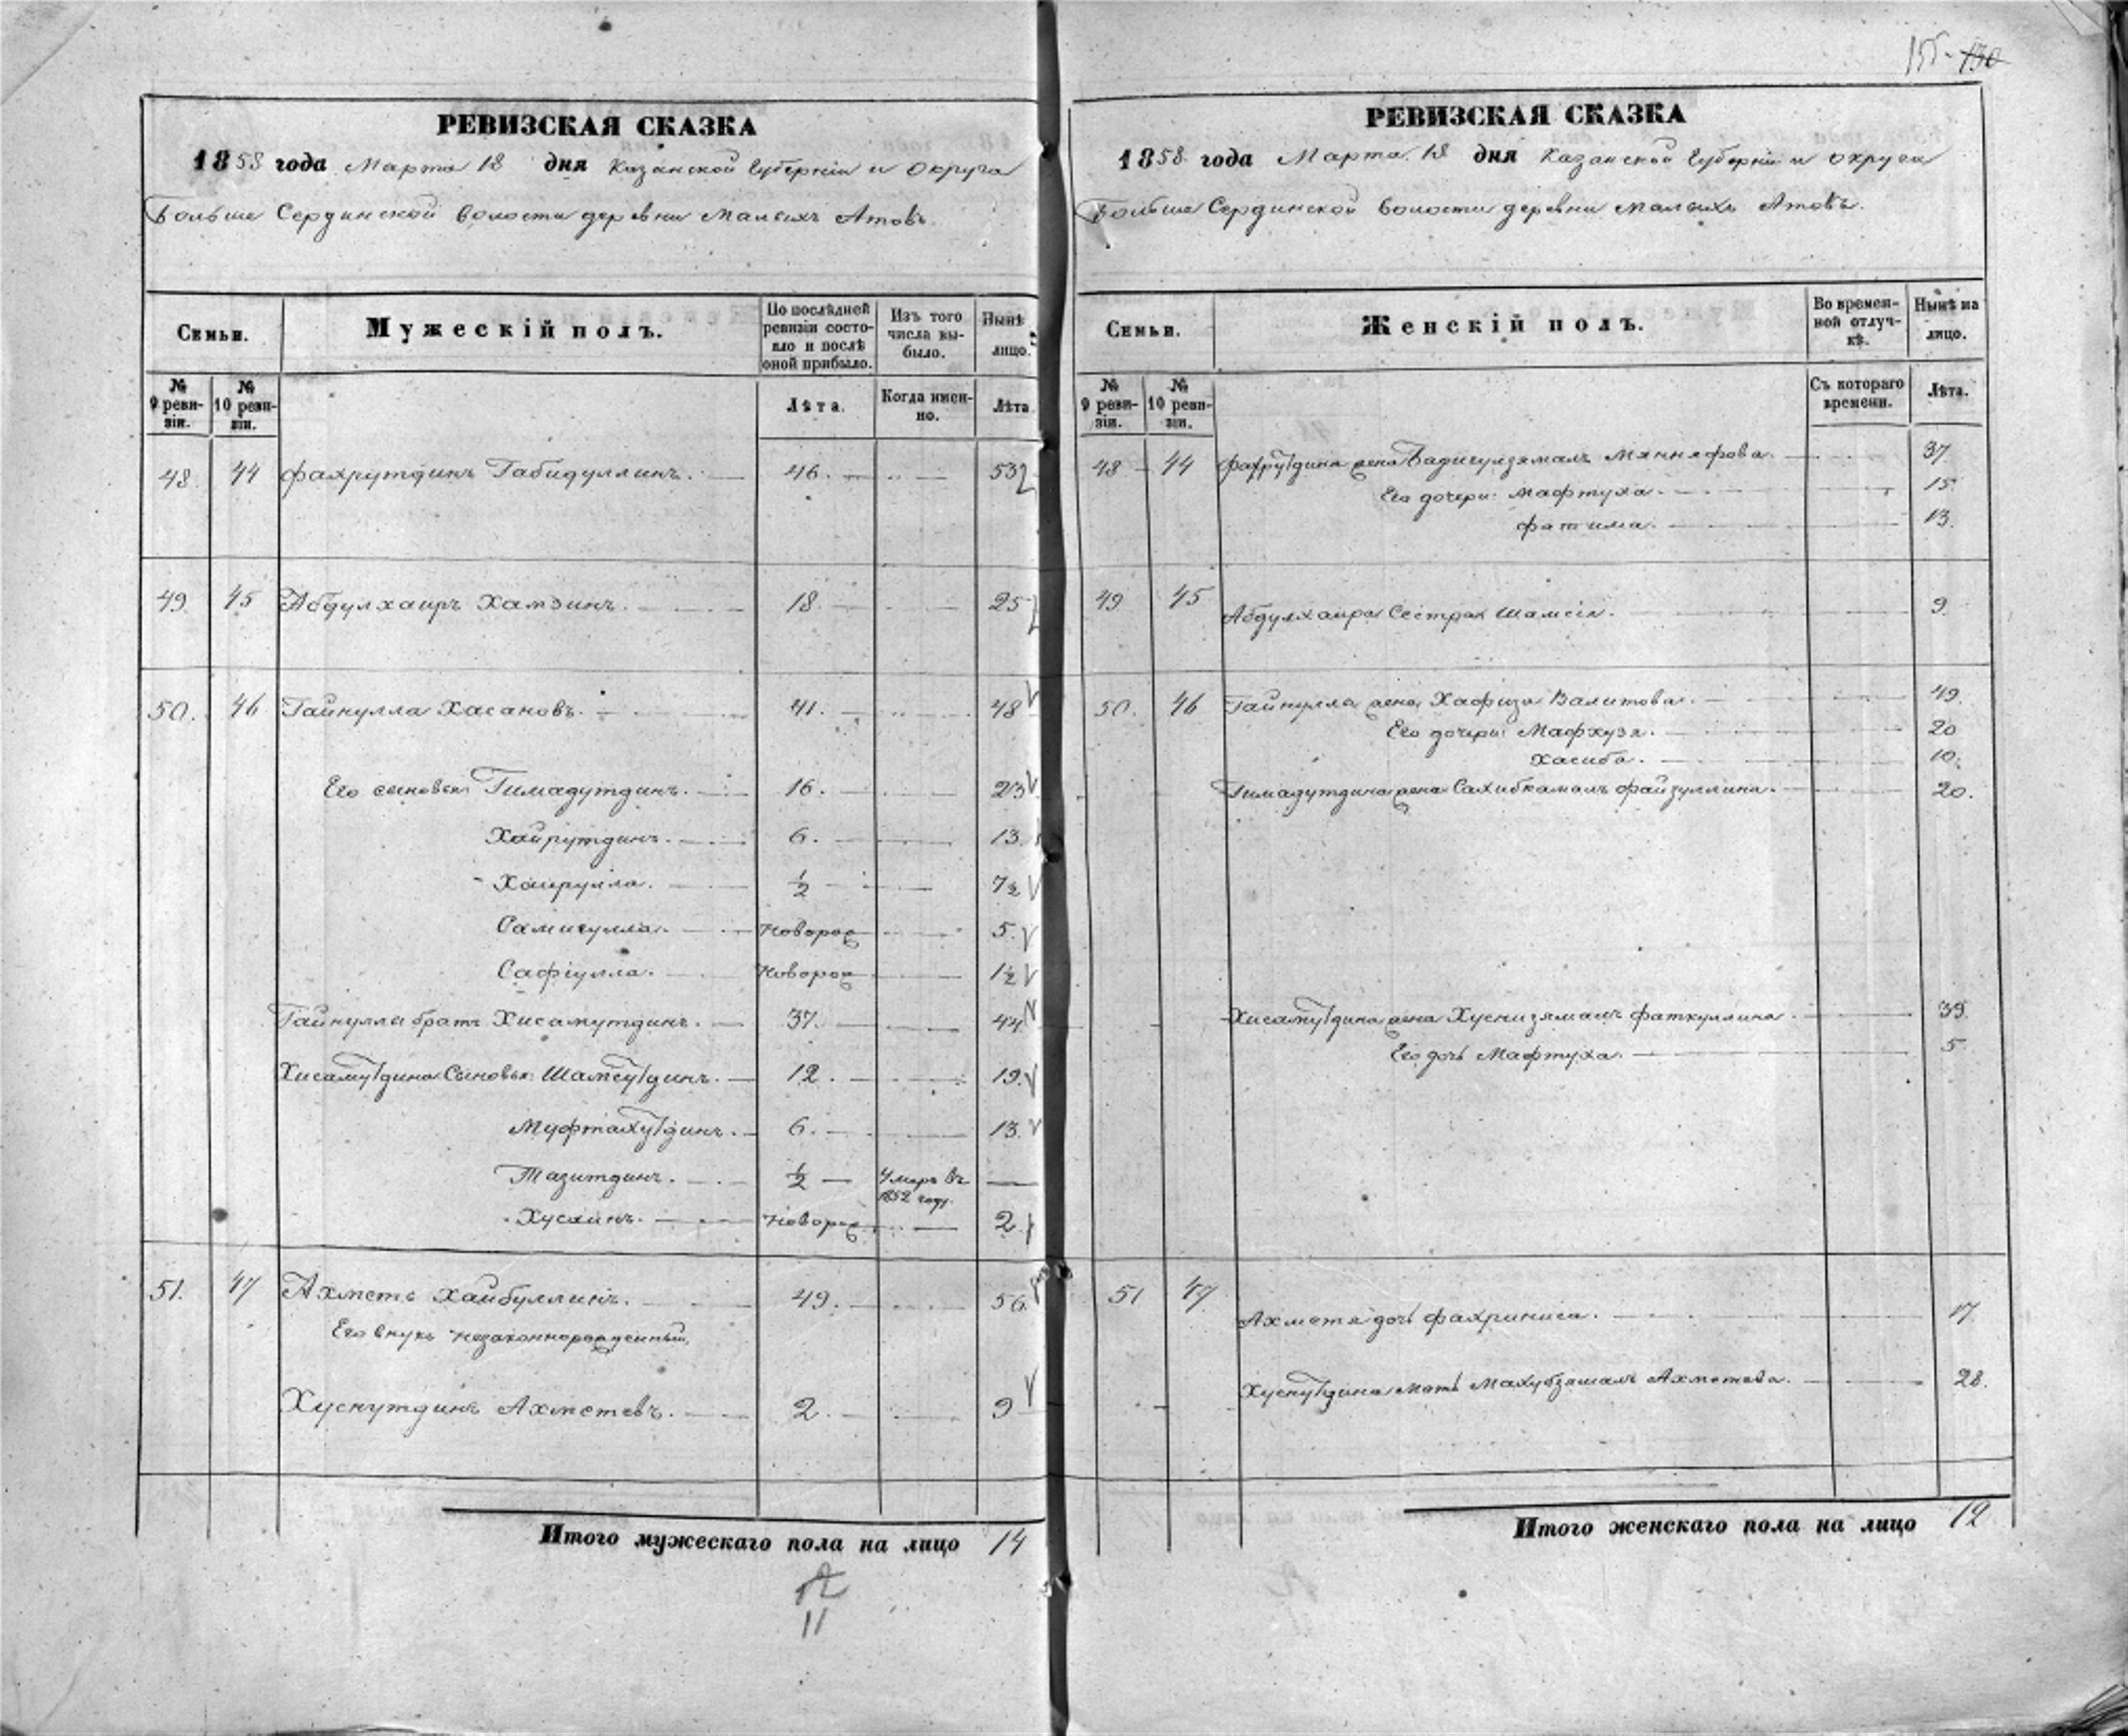 155. 130
РЕВИЗСКАЯ СКАЗКА
1858 года Марта 18 дня Казанской Губерніи и Округа
Больше Сердинской волости деревни Малыхъ Атовъ.
Семьи.
Мужескій полъ.
По послѣдней ревизіи состояло и послѣ оной прибыло.
Изъ того числа выбыло.
Нынѣ лицо.
№ 9 ревизіи.
№ 10 ревизіи.
Лѣта.
Когда именно.
Лѣта
48. 44 Фахрутдинъ Габидуллинъ. 46. 53
49. 45 Абдулхаиръ Хамзинъ. 18. 25
50. 46 Гайнулла Хасановъ. 41. 48
Его сыновья: Гимадутдинъ. 16. 23
Хайрутдинъ. 6. 13.
Хайрулла. ½ 7½
Самигулла. новорож 5.
Сафіулла. новорож 1½
Гайнуллы братъ Хисамутдинъ. 37. 44
Хисамутдина Сыновья: Шамсутдинъ. 12. 19.
Муфтахутдинъ. 6. 13.
Тазитдинъ. ½ Умеръ въ 1852 году.
Хусаинъ. новорож 2.
51. 47 Ахметъ Хайбуллинъ. 49. 56
Его внукъ незаконнорожденный,
Хуснутдинъ Ахметевъ. 2. 9
Итого мужескаго пола на лицо 14
11
РЕВИЗСКАЯ СКАЗКА
1858 года Марта 18 дня Казанской Губерніи и округа
Больше Сердинской волости деревни Малыхъ Атовъ.
Семьи.
Женскій полъ.
Во временной отлучкѣ.
Нынѣ на лицо.
№ 9 ревизіи.
№ 10 ревизіи.
Съ котораго времени.
Лѣта.
48 44 Фахрутдина жена Бадигулзямалъ Мяннафова. 37
Его дочери: Мафтуха. 15.
Фатима. 13.
49 45 Абдулхаира Сестра Шамсія. 9.
50. 46 Гайнуллы жена, Хафиза Валитова. 49.
Его дочери: Мафхузя. 20
Хасиба. 10.
Гимадутдина жена Сахибкамалъ Файзуллина. 20.
Хисамутдина жена Хуснизямалъ Фаткуллина. 39.
Его дочь Мафтуха. 5
51 47 Ахметя дочь Фахриниса. 17
Хуснутдина мать Махубзямалъ Ахметева. 28.
Итого женскаго пола на лицо 12